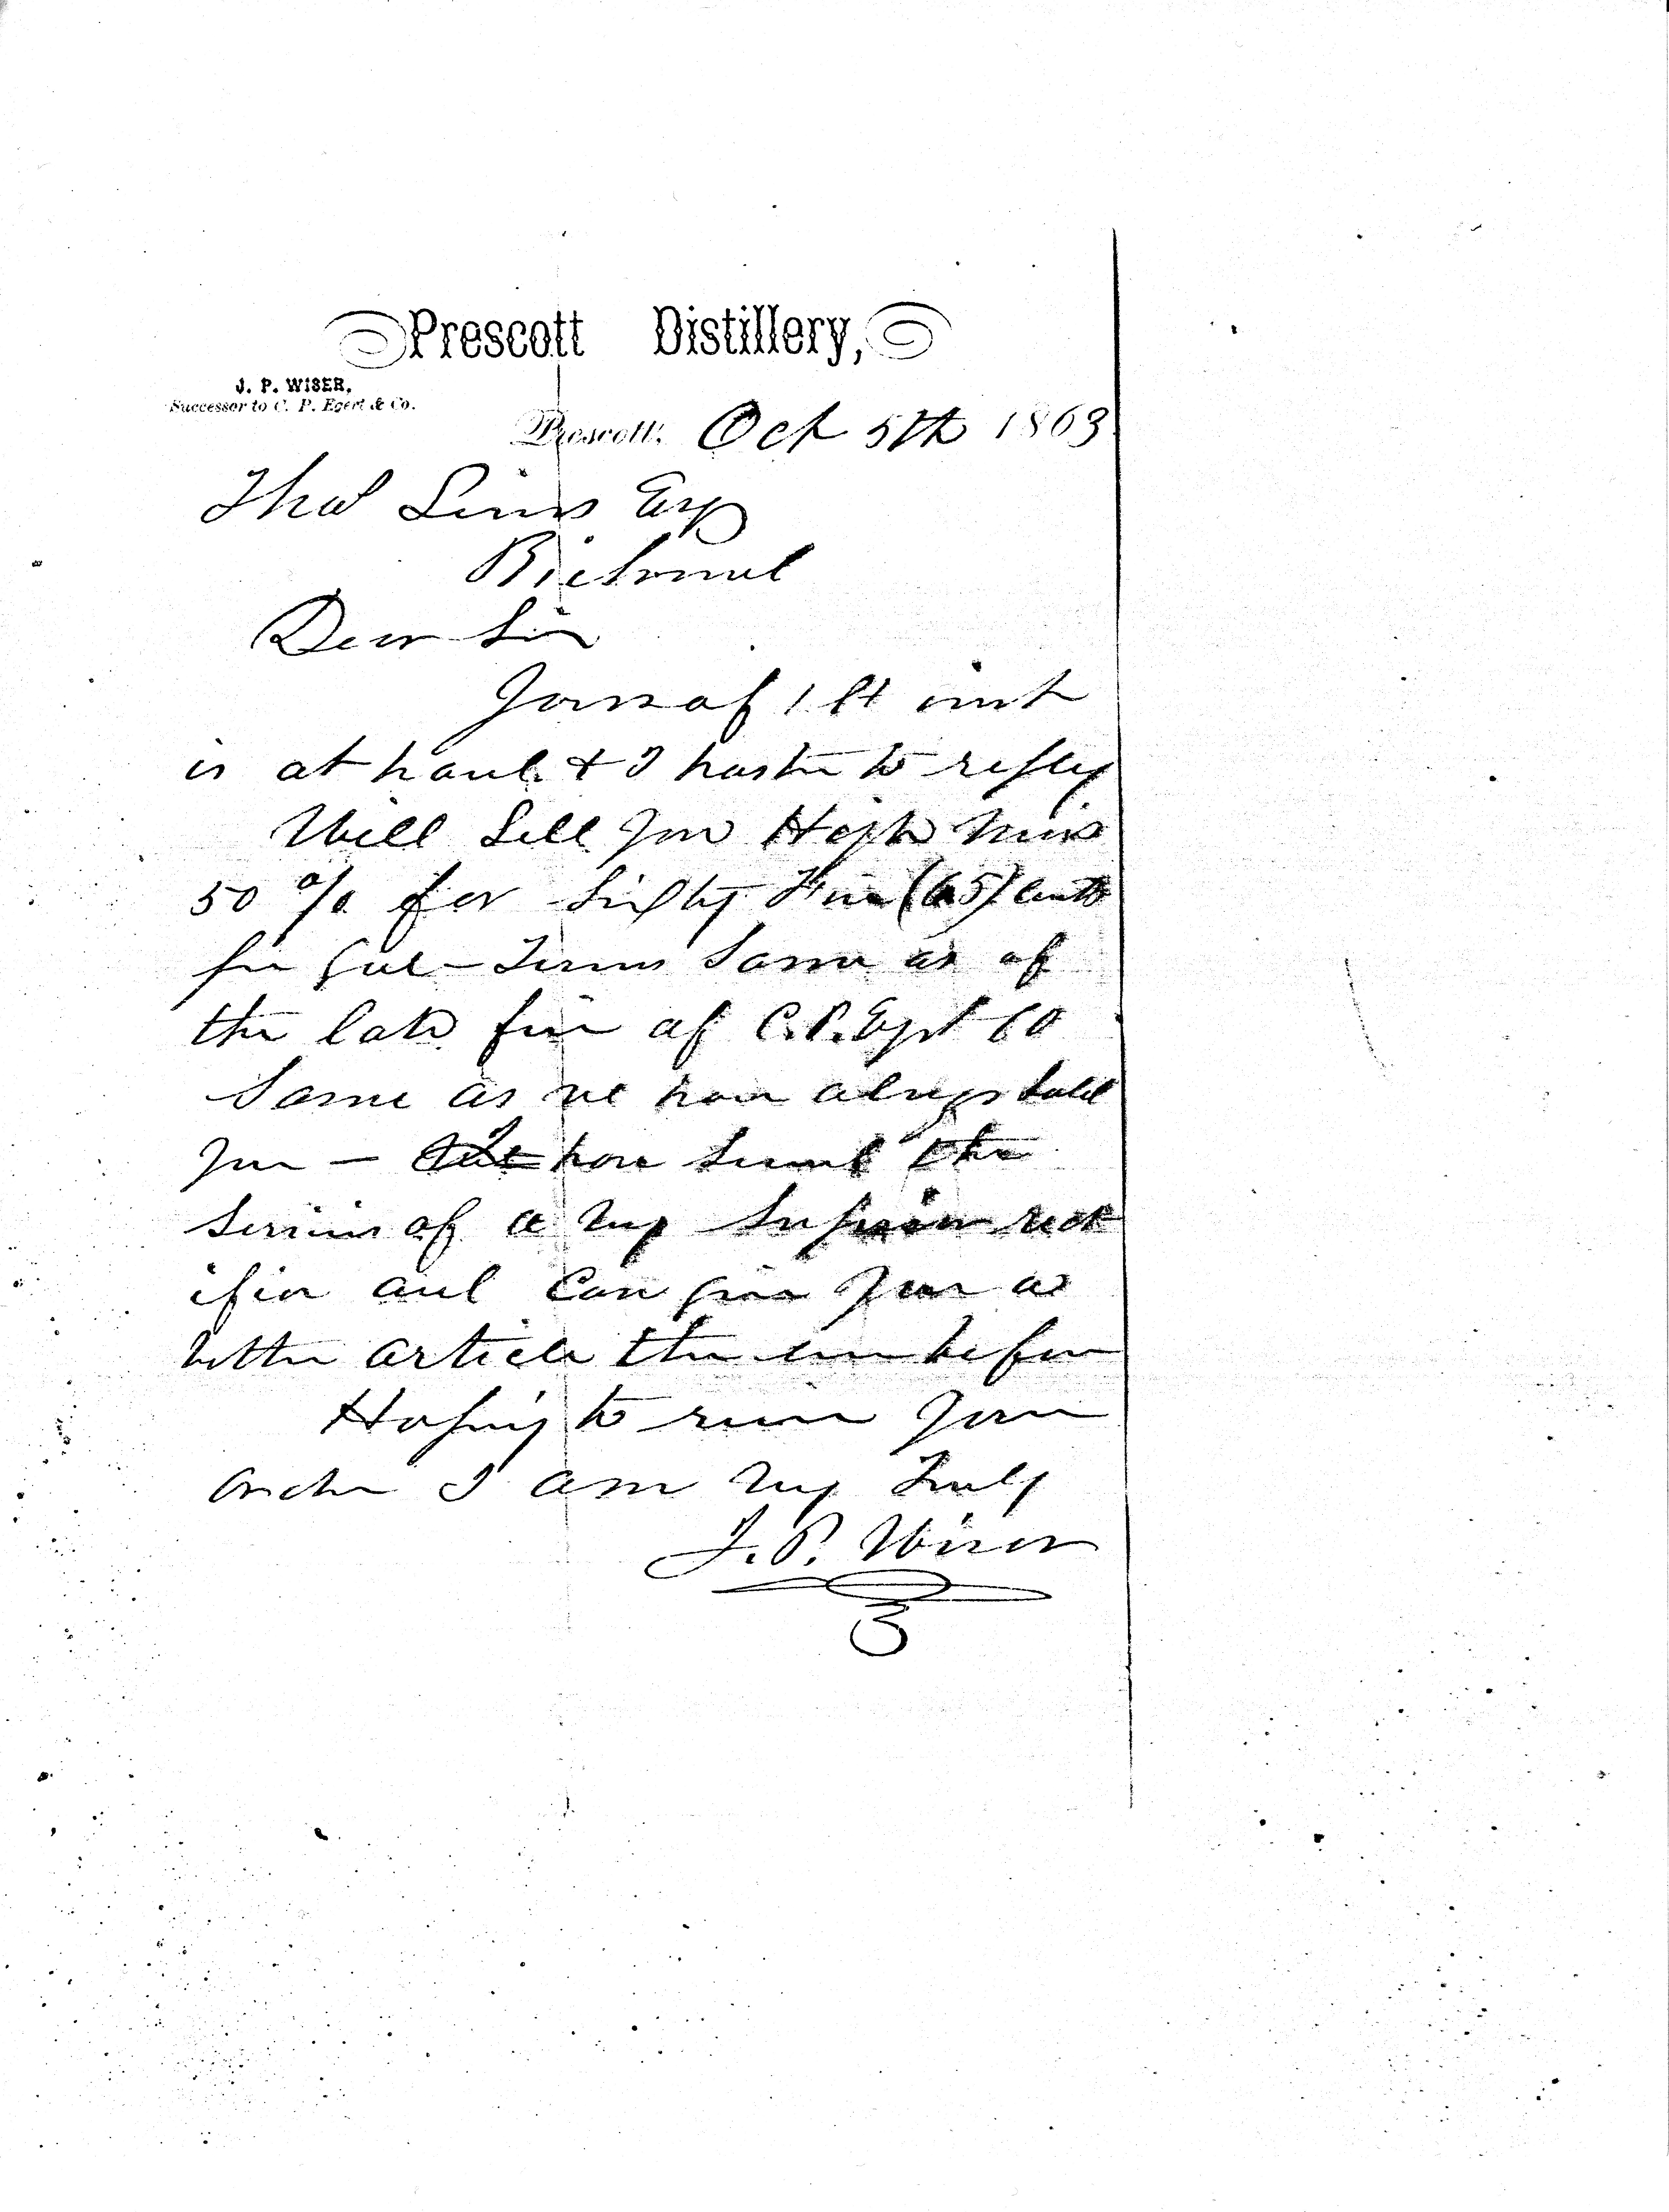 Prescott Distillery,
J. P. WISER,
Successor to C. P. Egert & Co.
Prescott, Oct 5th 1863
Thos Esq
Richmond
Dear Sir
Yours of 1st inst
is at hand & I hasten to reply
Will Sell you High Wines
50 % for Sixty Five (65) cents
per Gal - Terms Same as of
the late firm of C.P. Egert Co
Same as we have always sold
you - I have secured the
services of a very Superior rect
ifier and Can give you a
better article than ever before
Hoping to receive your
order I am very Truly
J. P. Wiser